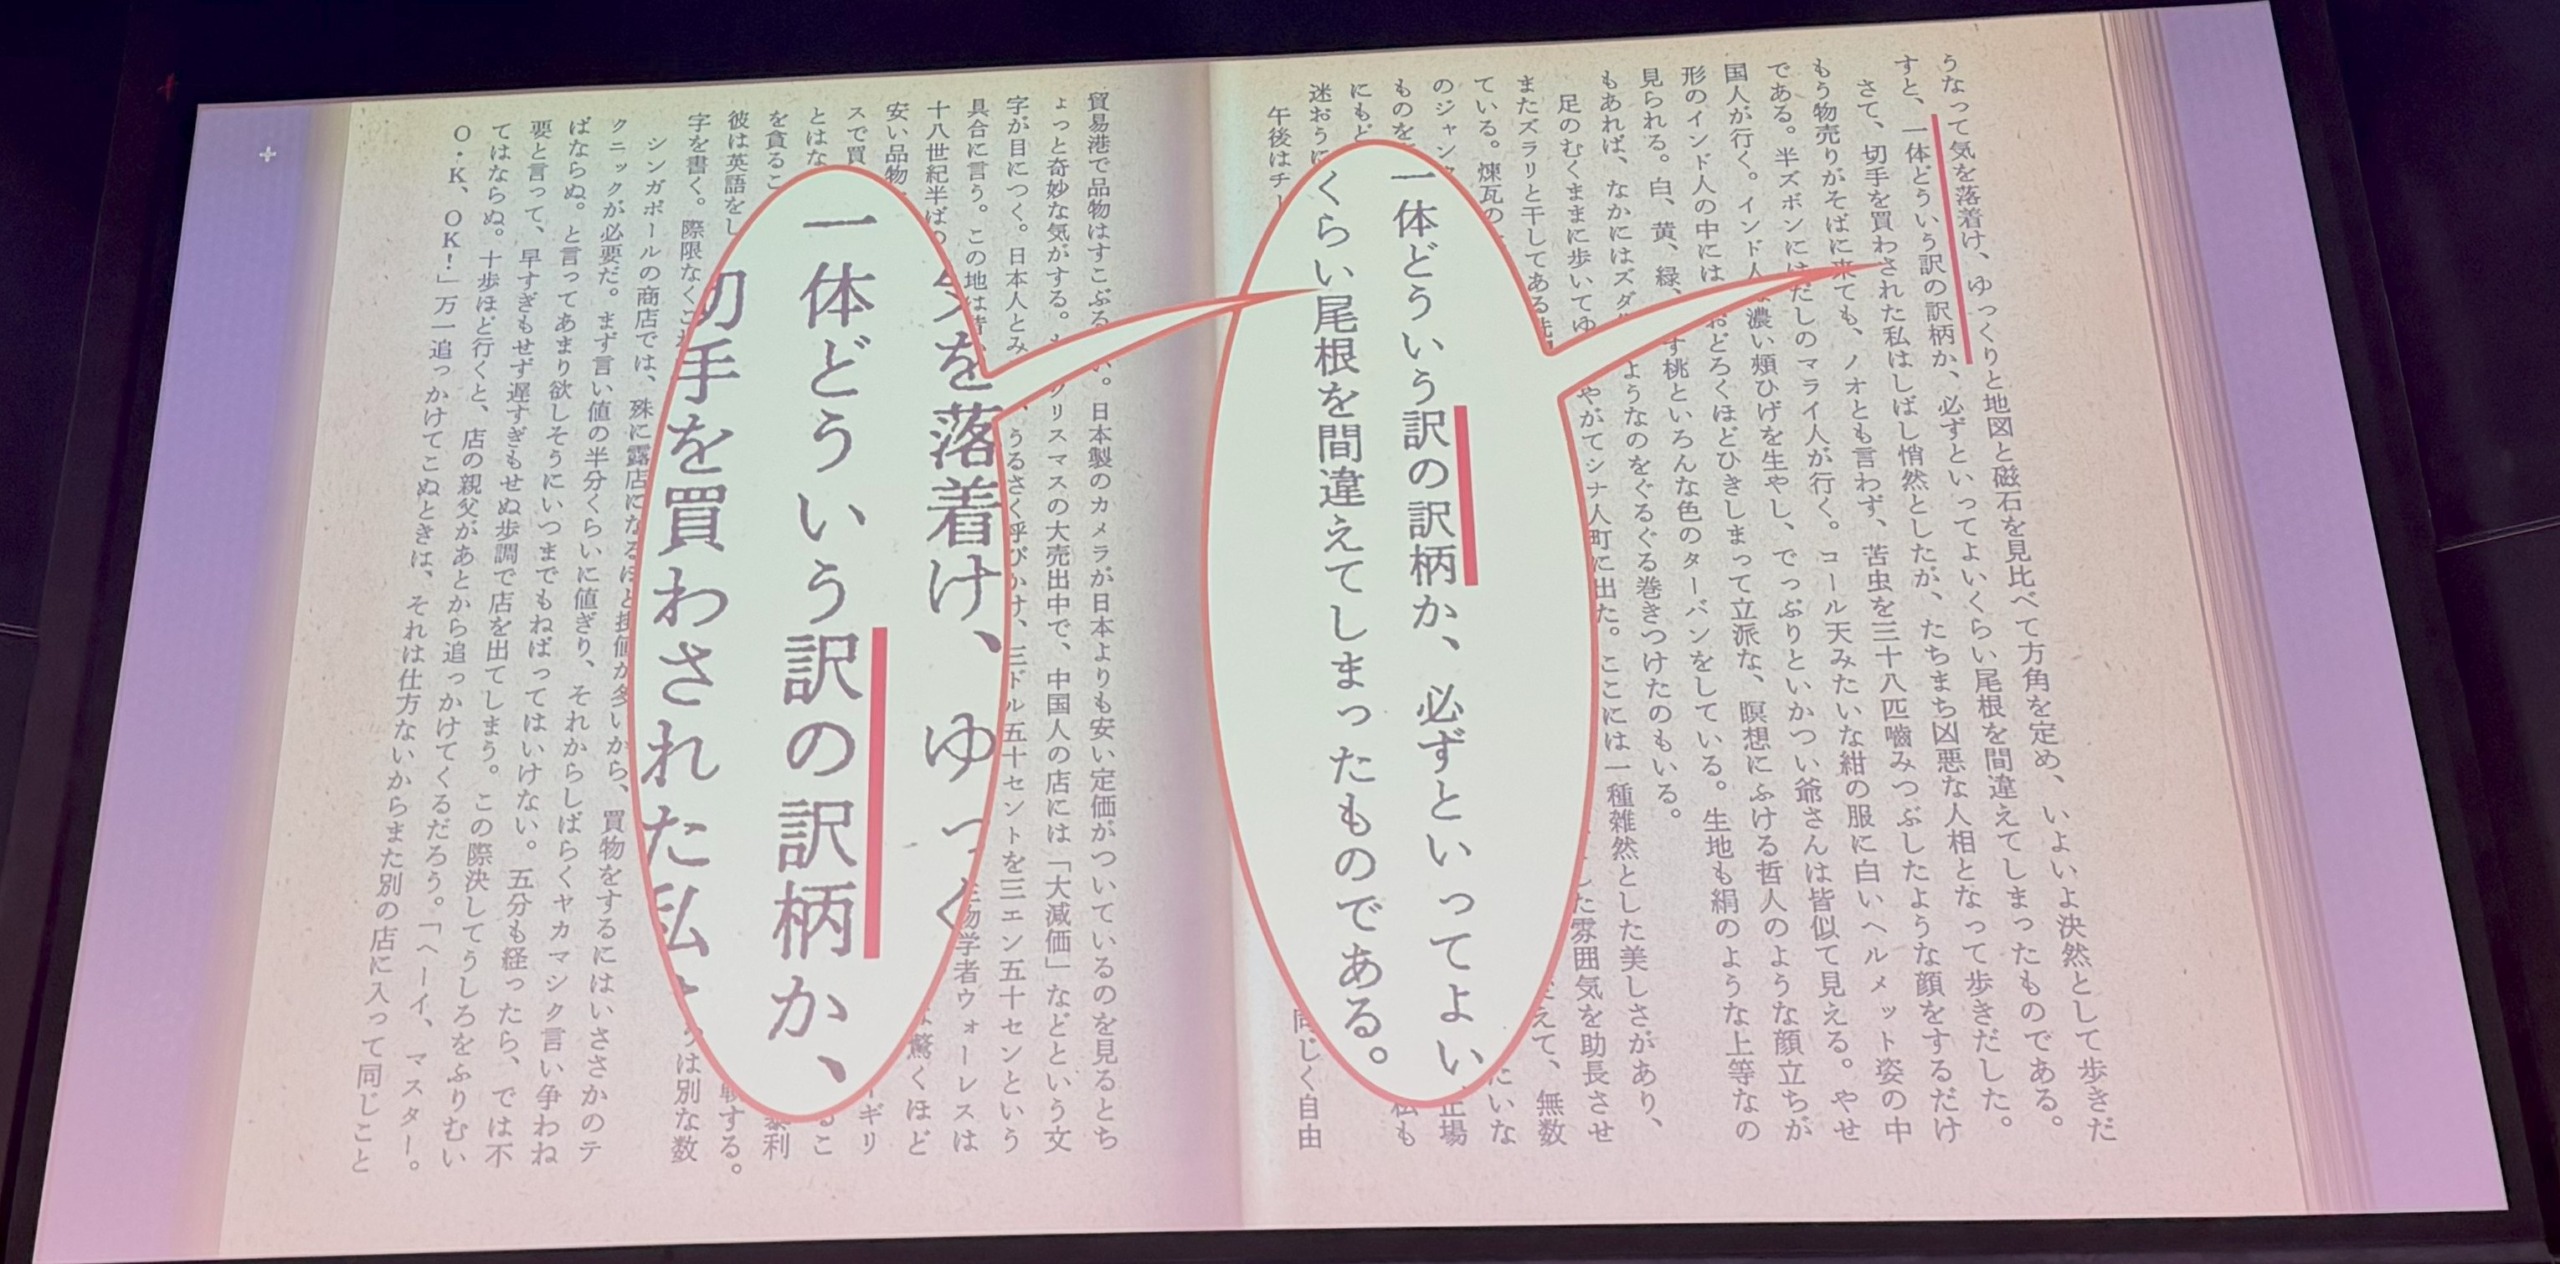 うなって気を落着け、ゆっくりと地図と磁石を見比べて方角を定め、いよいよ決然として歩きだ
すと、一体どういう訳の訳柄か、必ずといってよいくらい尾根を間違えてしまったものである。
さて、切手を買わされた私はしばし悄然としたが、たちまち凶悪な人相となって歩きだした。
もう物売りがそばに来ても、ノオとも言わず、苦虫を三十八匹嚙みつぶしたような顔をするだけ
である。半ズボンにはだしのマライ人が行く。コール天みたいな紺の服に白いヘルメット姿の中
国人が行く。インド人は濃い頰ひげを生やし、でっぷりといかつい爺さんは皆似て見える。やせ
形のインド人の中にはおどろくほどひきしまって立派な、瞑想にふける哲人のような顔立ちが
見られる。白、黄、緑、す桃といろんな色のターバンをしている。生地も絹のような上等なの
もあれば、なかにはズダようなのをぐるぐる巻きつけたのもいる。
足のむくままに歩いてゆやがてシナ人町に出た。ここには一種雑然とした美しさがあり、
またズラリと干してあるした雰囲気を助長させ
ている。煉瓦のえて、無数
のジャンたいな
ものを
にもど私も
迷おうに
午後はチー同じく自由
一体どういう訳の訳柄か、必ずといってよい
くらい尾根を間違えてしまったものである。
貿易港で品物はすこぶるい。日本製のカメラが日本よりも安い定価がついているのを見るとち
ょっと奇妙な気がする。クリスマスの大売出中で、中国人の店には「大減価」などという文
字が目につく。日本人とみ、うるさく呼びかけ、三ドル五十セントを三エン五十センという
具合に言う。この地は昔、生物学者ウォーレスは
十八世紀半ばの驚くほど
安い品物ギリ
スで買こ
とはな暴利
を貪るこ戦する。
彼は英語をしは別な数
字を書く。際限なくこれ
シンガポールの商店では、殊に露店になるほど掛値が多いから、買物をするにはいささかのテ
クニックが必要だ。まず言い値の半分くらいに値ぎり、それからしばらくヤカマシク言い争わね
ばならぬ。と言ってあまり欲しそうにいつまでもねばってはいけない。五分も経ったら、では不
要と言って、早すぎもせず遅すぎもせぬ歩調で店を出てしまう。この際決してうしろをふりむい
てはならぬ。十歩ほど行くと、店の親父があとから追っかけてくるだろう。「ヘーイ、マスター。
O・K、OK!」万一追っかけてこぬときは、それは仕方ないからまた別の店に入って同じこと
を落着け、ゆっく
一体どういう訳の訳柄か、
切手を買わされた私